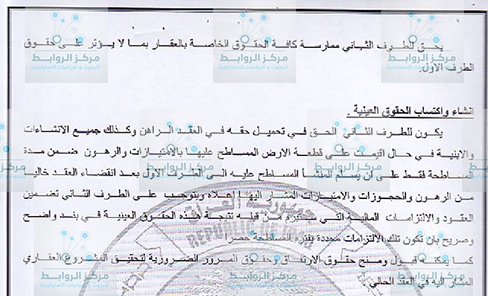 يحق للطرف الثاني ممارسة كافة الحقوق الخاصة بالعقار بما لا يؤثر على حقوق
الطرف الاول.
إنشاء واكتساب الحقوق العينية
يكون للطرف الثاني الحق في تحميل حقه في العقد الراهن وكذلك جميع الانشاءات
والابنية في حال اقيمت على قطعة الارض المساطح عليها بالامتيازات والرهون ضمن مدة
المساطحة فقط على أن يسلم المنشأ المساطح عليه الى الطرف الاول بعد انقضاء العقد خاليا
من الرهون والحجوزات والامتيازات المشار اليها اعلاه ويتوجب على الطرف الثاني تضمين
العقود والالتزامات المالية التي من قبله نتيجة لهذه الحقوق العينية في بند واضح
وصريح بان تكون تلك الالتزامات محددة بفترة المساطحة حصرا
كما يمكنه قبول ومنح حقوق الارتفاق وحقوق المرور الضرورية لتحقيق المشروع العقاري
المشار اليه في العقد الحالي
جمهورية العراق
REPUBLIC OF IRAQ
مركز الروابط
للبحوث والدراسات الاستراتيجية